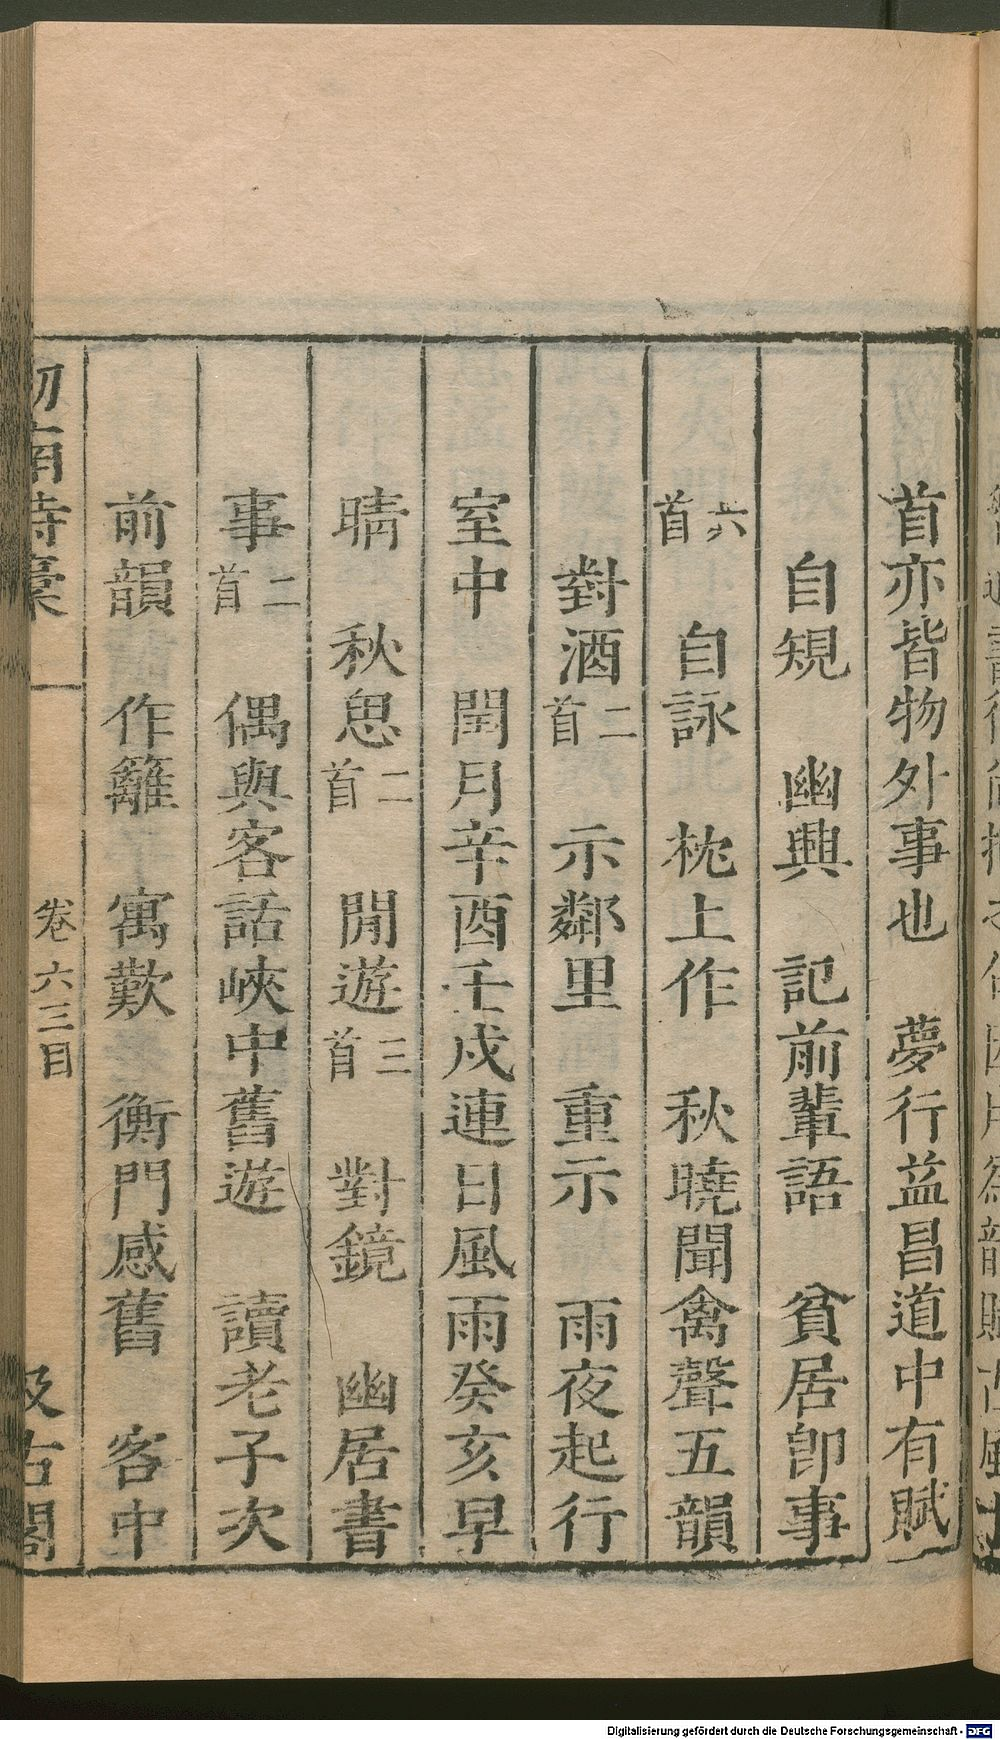 首亦皆物外事也　夢行益昌道中有賦
自規　幽興　記前輩語　貧居卽事
六首　自詠　枕上作　秋曉聞禽聲五韻
對酒二首　示鄰里　重示　雨夜起行
室中　閏月辛酉壬戌連日風雨癸亥早
晴　秋思二首　閒遊三首　對鏡　幽居書
事二首　偶與客話峽中舊遊　讀老子次
前韻　作籬　寓歎　衡門感舊　客中
劒南詩稾　卷六三目　汲古閣
Digitalisierung gefördert durch die Deutsche Forschungsgemeinschaft - DFG